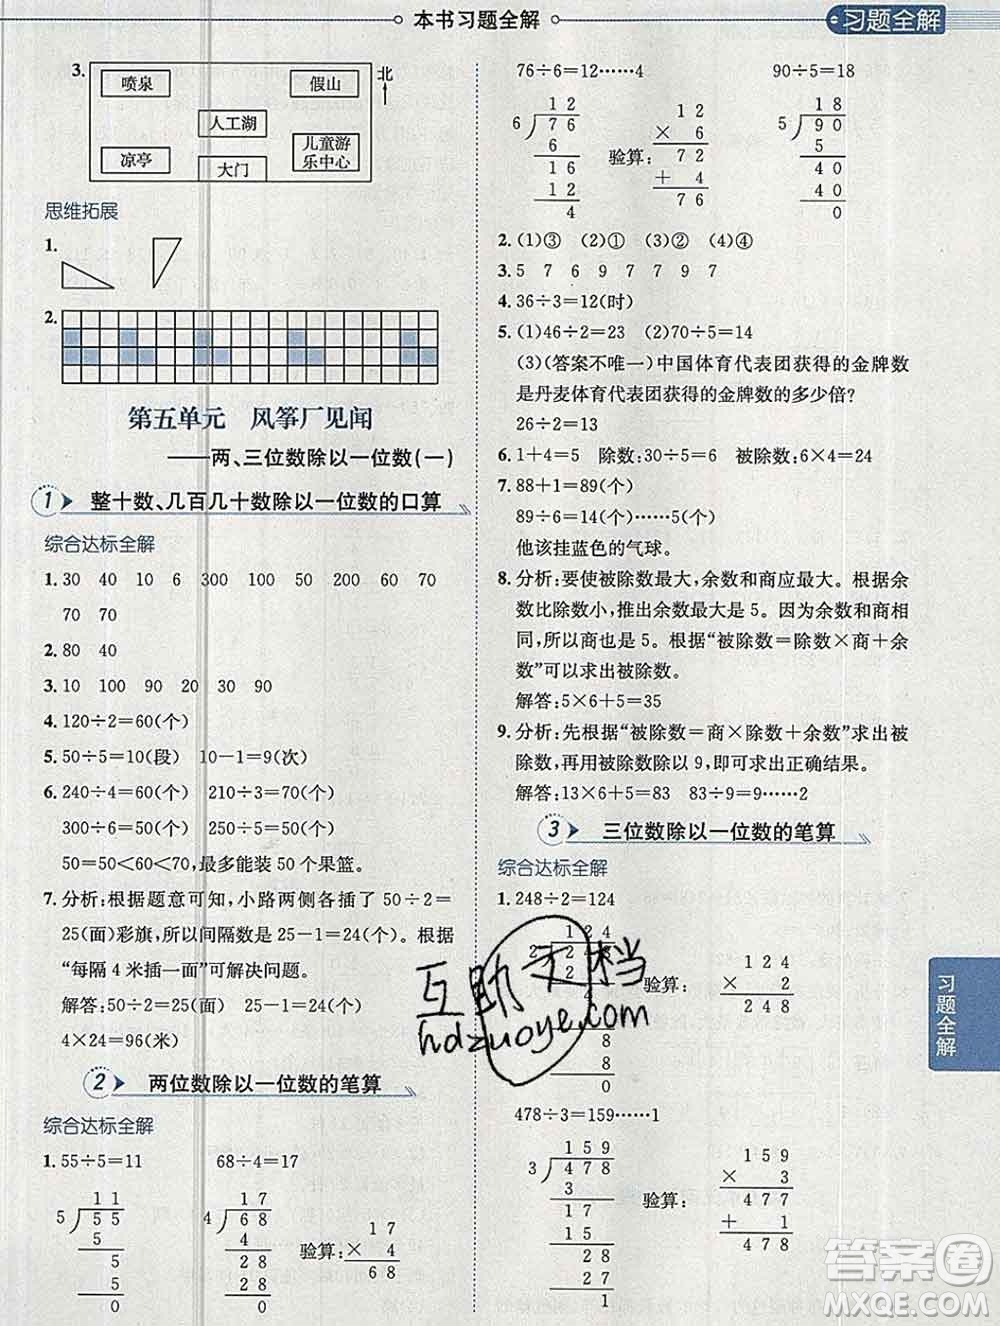 本书习题全解
习题全解
3.
喷泉
假山
北
人工湖
凉亭
大门
儿童游
乐中心
思维拓展
1.
2.
第五单元 风筝厂见闻
——两、三位数除以一位数(一)
1 整十数、几百几十数除以一位数的口算
综合达标全解
1. 30 40 10 6 300 100 200 60 70
70 70
2. 80 40
3. 10 100 90 20 30 90
4. 120÷2=60(个)
5. 50÷5=10(段) 10-1=9(次)
6. 240÷4=60(个) 210÷3=70(个)
300÷6=50(个) 250÷5=50(个)
50=50<60<70,最多能装 50 个果篮。
7. 分析:根据题意可知,小路两侧各插了 50÷2=
25(面)彩旗,所以间隔数是 25-1=24(个)。根据
“每隔 4 米插一面”可解决问题。
解答:50÷2=25(面) 25-1=24(个)
4×24=96(米)
2 两位数除以一位数的笔算
综合达标全解
1. 55÷5=11 68÷4=17
1 1
5 5 5
5
5
5
0
1 7
4 6 8
4
2 8
2 8
0
验算:
1 7
× 4
6 8
76÷6=12……4 90÷5=18
1 2
6 7 6
6
1 6
1 2
4
验算:
1 2
× 6
7 2
+ 4
7 6
1 8
5 9 0
5
4 0
4 0
0
2. (1)③ (2)① (3)② (4)④
3. 5 7 6 9 7 7 9 7
4. 36÷3=12(时)
5. (1)46÷2=23 (2)70÷5=14
(3)(答案不唯一)中国体育代表团获得的金牌数
是丹麦体育代表团获得的金牌数的多少倍?
26÷2=13
6. 1+4=5 除数:30÷5=6 被除数:6×4=24
7. 88+1=89(个)
89÷6=14(组)……5(个)
他该挂蓝色的气球。
8. 分析:要使被除数最大,余数和商应最大。根据余
数比除数小,推出余数最大是 5。因为余数和商相
同,所以商也是 5。根据“被除数=除数×商+余
数”可以求出被除数。
解答:5×6+5=35
9. 分析:先根据“被除数=商×除数+余数”求出被
除数,再用被除数除以 9,即可求出正确结果。
解答:13×6+5=83 83÷9=9……2
3 三位数除以一位数的笔算
综合达标全解
1. 248÷2=124
1 2 4
2 2 4 8
2
4
8
8
0
验算:
1 2 4
× 2
2 4 8
478÷3=159……1
1 5 9
3 4 7 8
3
1 7
1 5
2 8
2 7
1
验算:
1 5 9
× 3
4 7 7
+ 1
4 7 8
习题全解
互助文档
hdzuoye.com
答案圈
MXQE.COM